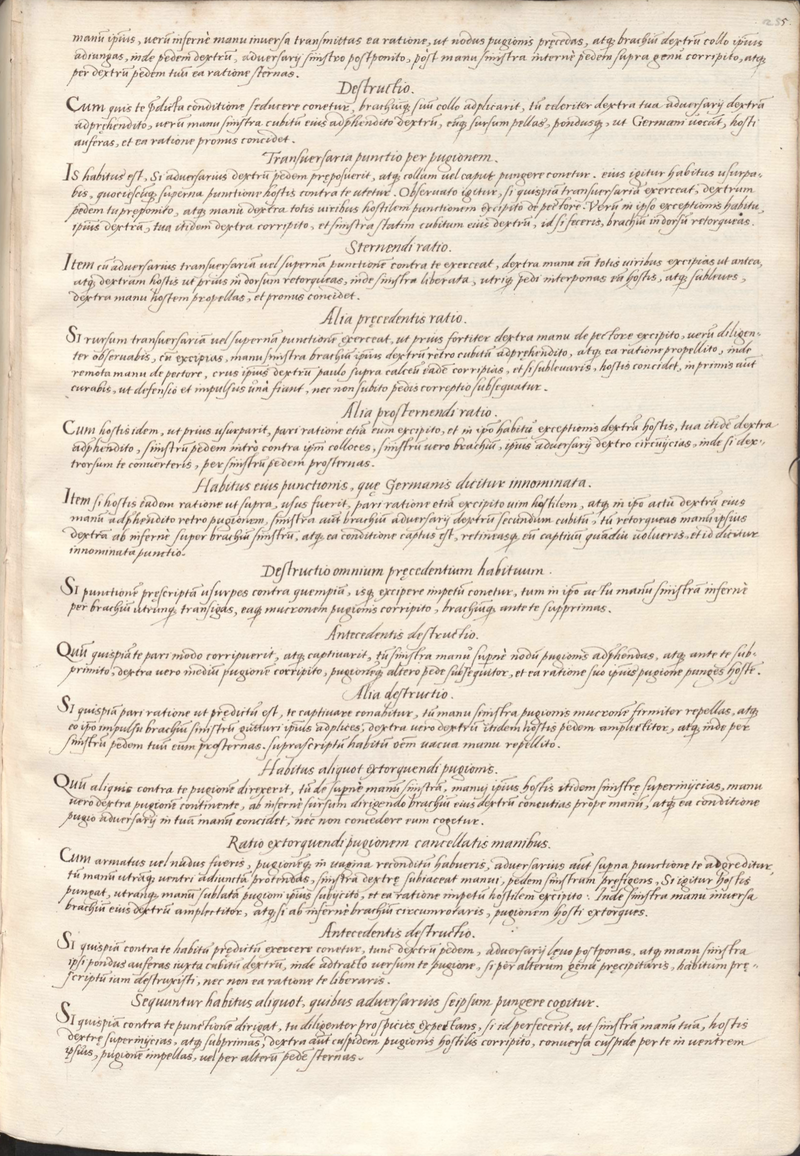 255.
manū ipsius, verū infernè manu inversa transmittas ea ratione, ut nodus pugionis pręcedas, atq; brachiū dextrū collo ipsius
adiungas, inde pedem dextrū, adversarij sinistro postponito, post manu sinistra internè pedem supra genu corripito, atq;
per dextrū pedem tuū ea ratione sternas.
Destructio.
Cum quis te p̄dicta conditione seducere conetur, brachiumq; suū collo adplicarit, tū celeriter dextra tua adversarij dextrā
adprehendito, verū manu sinistra cubitū eius adp̄hendito dextrū, eūq; sursum pellas, pondusq;, ut Germani vocāt, hosti
auferas, et ea ratione pronus concidet.
Transversaria punctio per pugionem.
Is habitus est, Si adversarius dextrū pedem pręposuerit, atq; collum vel caput pungere conetur. eius igitur habitus usurpa-
bis, quociescūq; superna punctione hostis contra te utetur. Observato igitur, si quispiā transversariā exerceat, dextrum
pedem tu pręponito, atq; manu dextera totis viribus hostilem punctionem excipito de pectore. Verū in ipso exceptionis habitu,
ipsius dextrā, tua itidem dextra corripito, et sinistra statim cubitum eius dextrū, id si feceris, brachiū in dorsū retorqueas.
Sternendi ratio.
Item cū adversarius transversariā vel supernā punctionē contra te exerceat, dextra manu eā totis viribus excipias ut antea,
atq; dextram hostis ut prius in dorsum retorqueas, inde sinistra liberata, utriq; pedi interponas eā hostis, atq; subleves,
dextra manu hostem propellas, et pronus concidet.
Alia pręcedentis ratio.
Si rursum transversariā vel supernā punctionē exerceat, ut prius fortiter dextra manu de pectore excipito, verū diligen-
ter observabis, cū excipias, manu sinistra brachiū ipsius dextrū retro cubitū adprehendito, atq; ea ratione propellito, inde
remota manu de pectore, crus ipsius dextrū paulo supra calceū eade corripias, et si sublevaris, hostis concidet, in primis aūt
curabis, ut defensio et impulsus unà fiant, nec non subito pedis correptio subsequatur.
Alia prosternendi ratio.
Cum hostis idem, ut prius usurparit, pari ratione etiā eum excipito, et in ipō habitu exceptionis dextrā hostis, tua itidē dextra
adp̄hendito, sinistrū pedem intrò contra ipm̄ colloces, sinistrū vero brachiū, ipsius adversarij dextro circūijcias, inde si dex-
trorsum te converteris, per sinistrū pedem prosternas.
Habitus eius punctionis, quę Germanis dicitur innominata.
Item si hostis eadem ratione ut supra, usus fuerit, pari ratione etiā excipito vim hostilem, atq; in ipō actu dextrā eius
manū adp̄hendito retro pugionem, sinistra aūt brachiū adversarij dextrū secundum cubitū, tū retorqueas manū ipsius
dextrā ab infernè super brachiū sinistrū, atq; ea conditione captus est, retineasq; eū captivū quādiu volueris, et id dicitur
innominata punctio.
Destructio omnium pręcedentium habituum.
Si punctionē pręscriptā usurpes contra quempiā, isq; excipere impetū conetur, tum in ipō actu manū sinistrā infernè
per brachiū utrunq; transigas, eaq; mucronem pugionis corripito, brachiūq; ante te supprimas.
Antecedentis destructio.
Quū quispiā te pari modo corripuerit, atq; captivarit, tū sinistra manū supnè nodū pugionis adp̄hendas, atq; ante te sub-
primito, dextra vero mediū pugionē corripito, pugioneq; altero pede subsequitor, et ea ratione suo ipsius pugione punges hostē.
Alia destructio.
Si quispiā pari ratione ut prędictū est, te captivare conabitur, tū manu sinistra pugionis mucronē firmiter repellas, atq;
eo ipō impulsu brachiū sinistrū gutturi ipsius adplices, dextra vero dextrū itidem hostis pedem amplectitor, atq; inde per
sinistrū pedem tuū eum prosternas. suprascriptū habitū oēm vacua manu repellito.
Habitus aliquot extorquendi pugionis.
Quū aliquis contra te pugione direxerit, tū de supnè manū sinistrā, manuj ipsius hostis itidem sinistrę superinijcias, manu
vero dextra pugionē continente, ab infernè sursum dirigendo brachiū eius dextrū concutias prope manū, atq; ea conditione
pugio adversarij in tuā manū concidet, nec non concedere eum cogetur.
Ratio extorquendi pugionem cancellatis manibus.
Cum armatus vel nudus fueris, pugionēq; in vagina reconditū habueris, adversarius aūt supna punctione te adgreditur,
tū manū utrāq; ventri adiunctā protendas, sinistra dextrę subiaceat manui, pedem sinistrum pręfigens, Si igitur hostis
pungat, utranq; manū sublatā pugioni ipsius subijcito, et ea ratione impetū hostilem excipito. Inde sinistra manu inversa
brachiū eius dextrū amplectitor, atq; si ab infernè brachiū circumrotaris, pugionem hosti extorques.
Antecedentis destructio.
Si quispiā contra te habitū prędictū exercere conetur, tunc dextrū pedem, adversarij lęvo postponas, atq; manu sinistra
ipsi pondus auferas iuxta cubitū dextrū, inde adtracto versum te pugione, si per alterum genū pręcipitaris, habitum prę-
scriptū iam destruxisti, nec non ea ratione te liberaris.
Sequuntur habitus aliquot, quibus adversarius seipsum pungere cogitur.
Si quispiā contra te punctionē dirigat, tu diligenter prospicies expectans, si id perfecerit, ut sinistrā manū tuā, hostis
dextrę superinijcias, atq; subprimas, dextra aūt cuspidem pugionis hostilis corripito, conversa cuspide per te in ventrem
ipsius, pugionē impellas, vel per alterū pedē sternas.